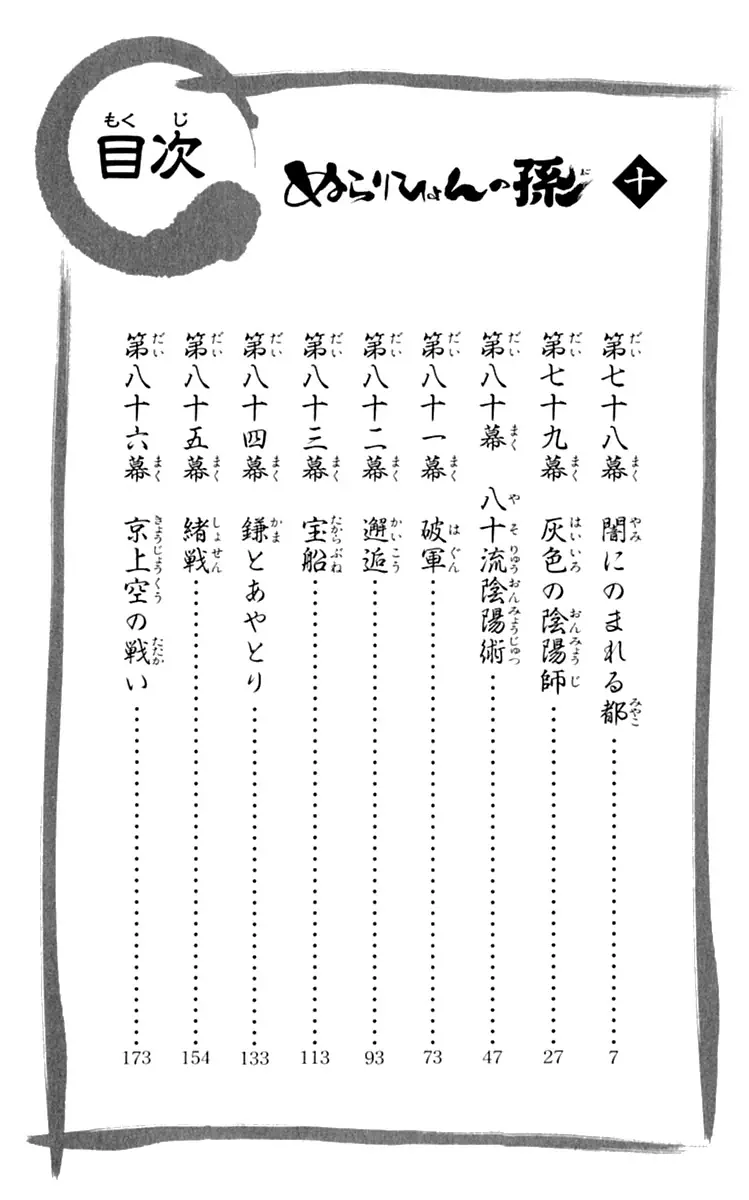 目次
ぬらりひょんの孫 十
第七十八幕 闇にのまれる都 7
第七十九幕 灰色の陰陽師 27
第八十幕 八十流陰陽術 47
第八十一幕 破軍 73
第八十二幕 邂逅 93
第八十三幕 宝船 113
第八十四幕 鎌とあやとり 133
第八十五幕 緒戦 154
第八十六幕 京上空の戦い 173